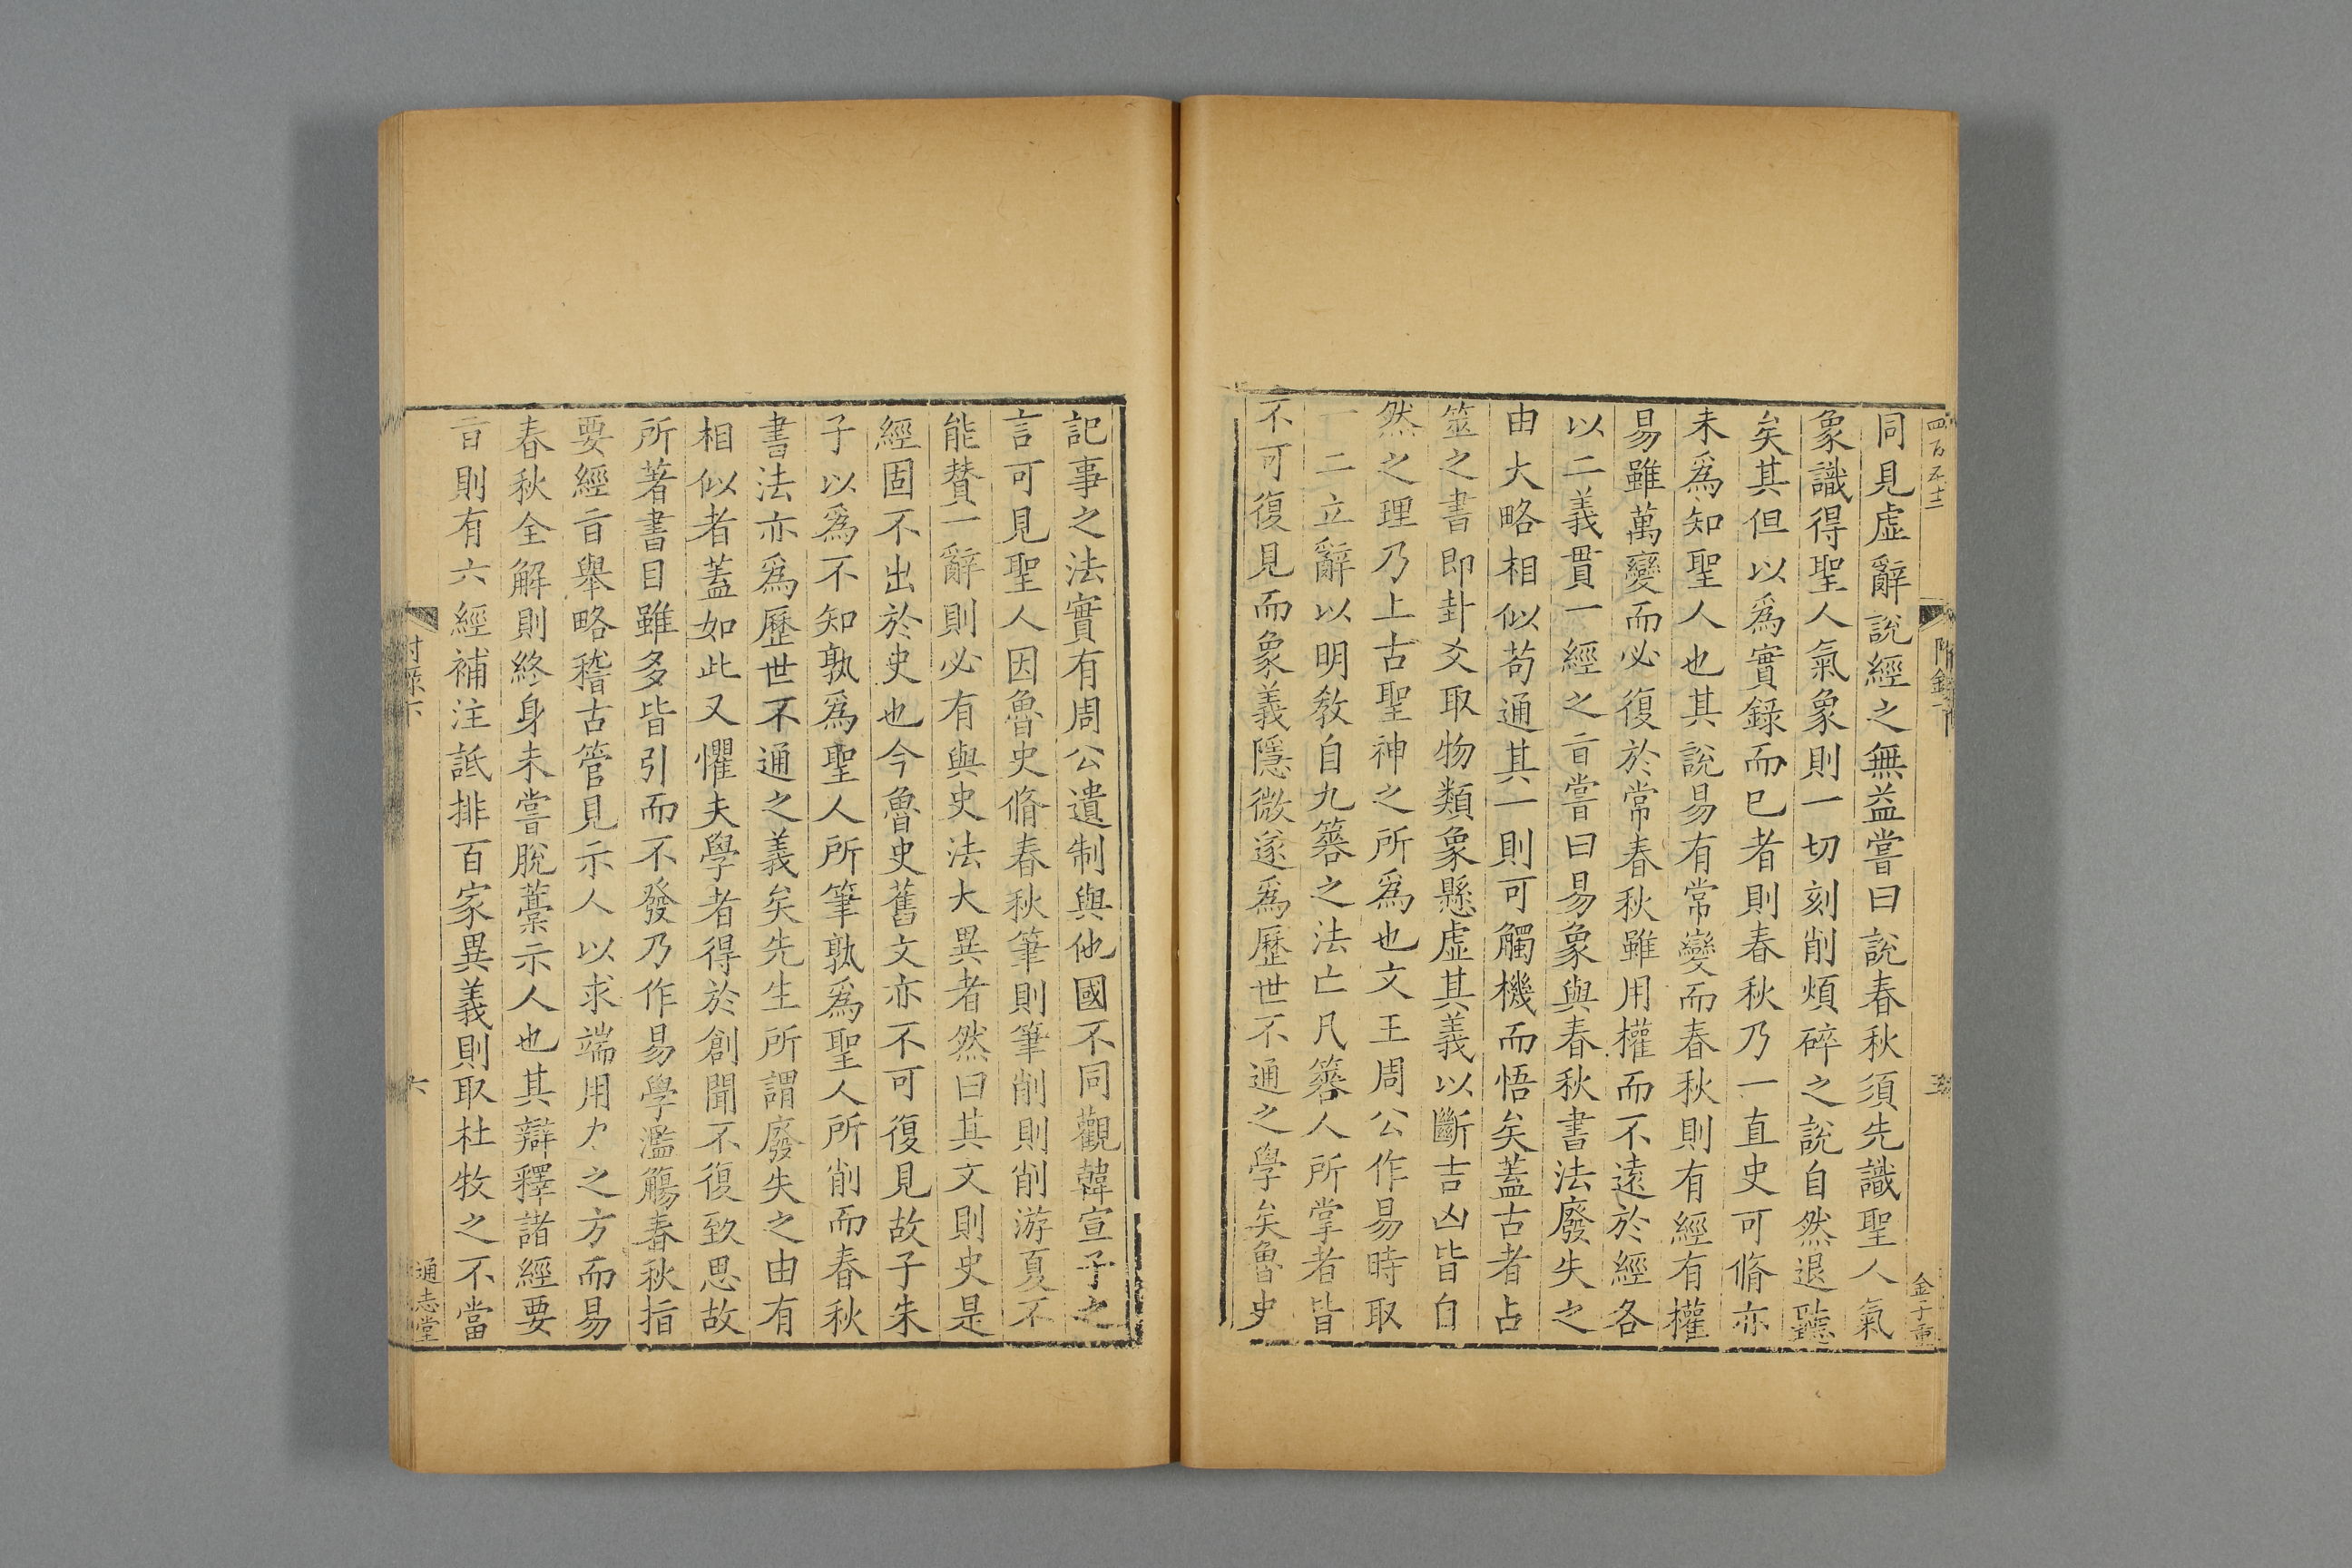 四百五十三
附錄下
五
金子重
同見虛辭說經之無益嘗曰說春秋須先識聖人氣
象識得聖人氣象則一切刻削煩碎之說自然退聽
矣其但以爲實錄而已者則春秋乃一直史可脩亦
未爲知聖人也其說易有常變而春秋則有經有權
易雖萬變而必復於常春秋雖用權而不遠於經各
以二義貫一經之㫖嘗曰易象與春秋書法廢失之
由大略相似苟通其一則可觸機而悟矣蓋古者占
筮之書即卦爻取物類象懸虛其義以斷吉凶皆自
然之理乃上古聖神之所爲也文王周公作易時取
一二立辭以明教自九簭之法亡凡簭人所掌者皆
不可復見而象義隱微遂爲歷世不通之學矣魯史
記事之法實有周公遺制與他國不同觀韓宣子之
言可見聖人因魯史脩春秋筆則筆削則削游夏不
能賛一辭則必有與史法大異者然曰其文則史是
經固不出於史也今魯史舊文亦不可復見故子朱
子以爲不知孰爲聖人所筆孰爲聖人所削而春秋
書法亦爲歷世不通之義矣先生所謂廢失之由有
相似者蓋如此又懼夫學者得於創聞不復致思故
所著書目雖多皆引而不發乃作易學濫觴春秋指
要經㫖舉略稽古管見示人以求端用力之方而易
春秋全解則終身未嘗脫藳示人也其辯釋諸經要
㫖則有六經補注詆排百家異義則取杜牧之不當
附錄下
六
通志堂